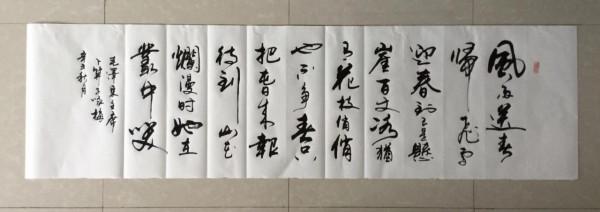 風雨送春
歸飛雪
迎春到已是懸
崖百丈冰猶
有花枝俏俏
也不争春只
把春来報
待到山花
爛漫時她在
叢中笑
毛澤東主席
卜算子咏梅
秋月